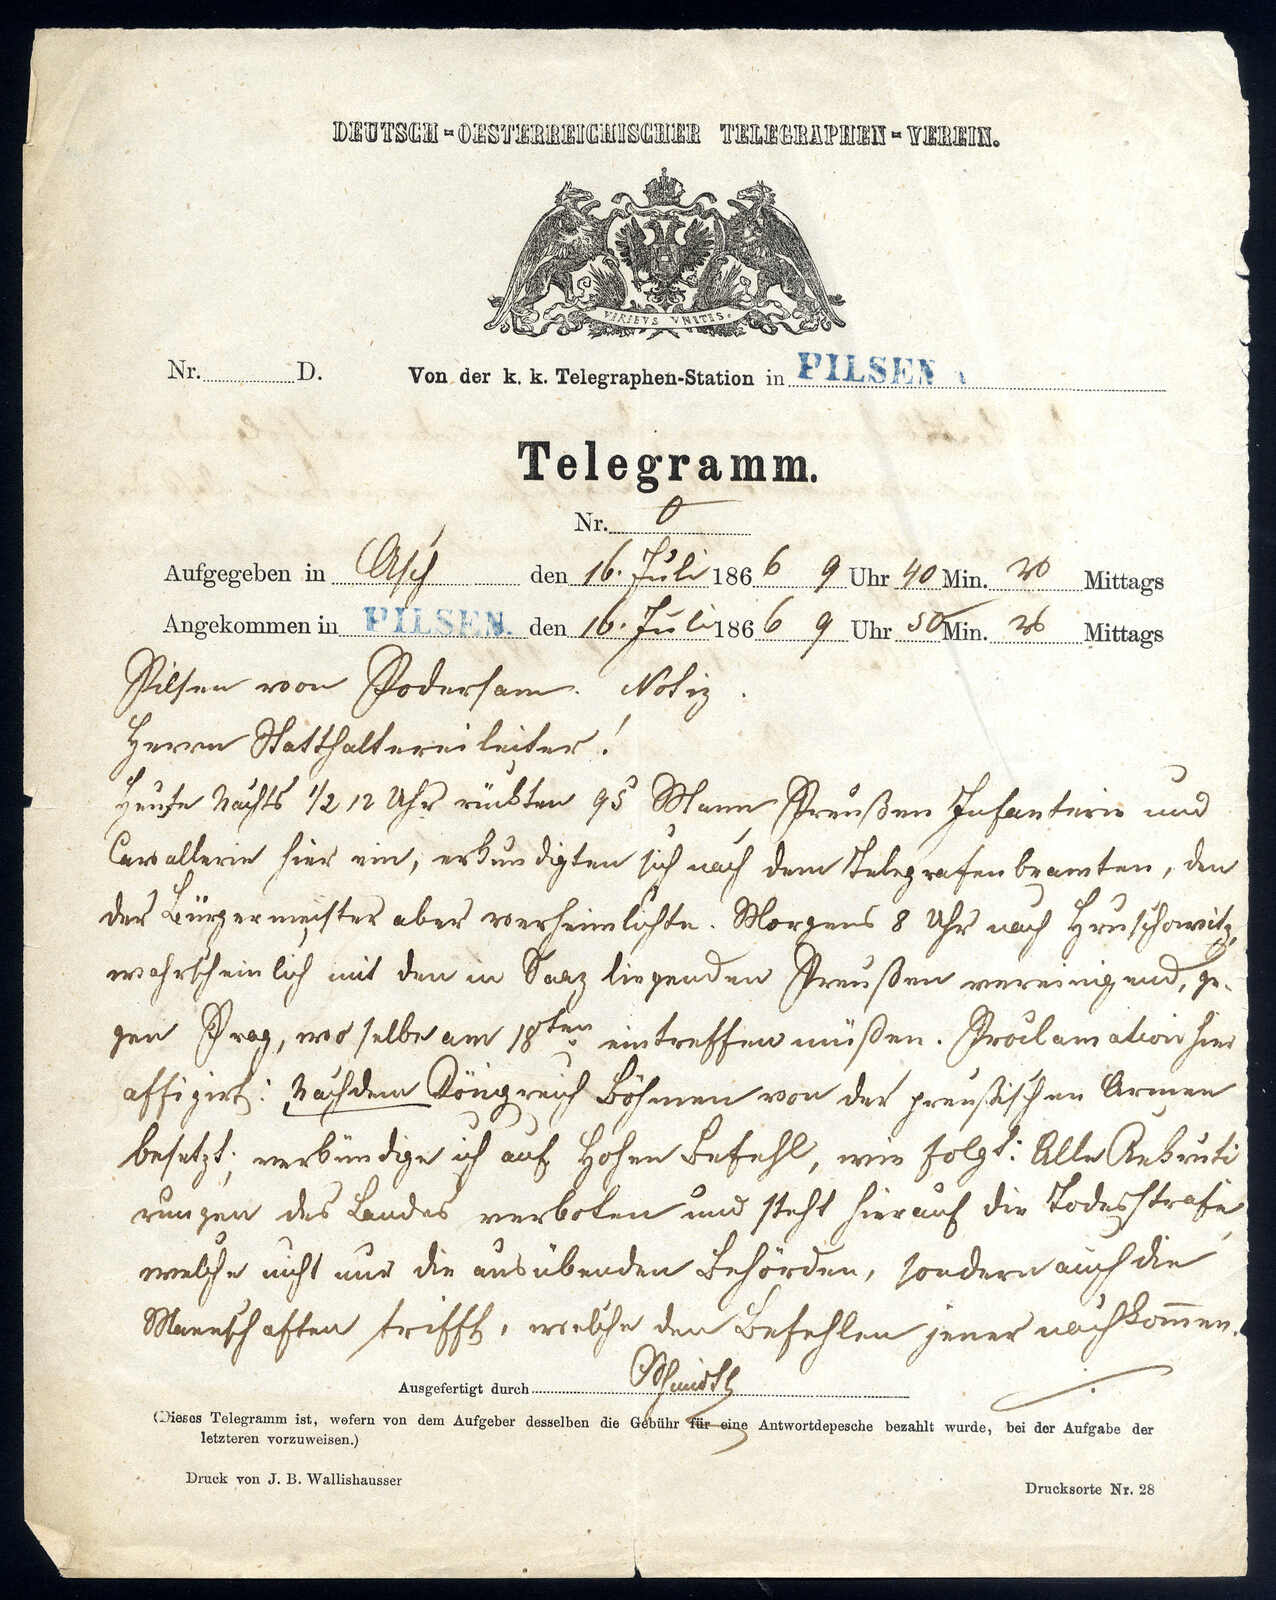 DEUTSCH-OESTERREICHISCHER TELEGRAPHEN-VEREIN.
VIRIBVS VNITIS.
Nr. D. Von der k. k. Telegraphen-Station in PILSEN
Telegramm.
Nr. 0
Aufgegeben in Asch den 16. Juli 1866 9 Uhr 40 Min. Mittags
Angekommen in PILSEN. den 16. Juli 1866 9 Uhr 50 Min. Mittags
Pilsen von Podersam. Notiz.
Herrn Statthaltereileiter!
Heute Nachts 1/2 12 Uhr rückten 95 Mann Preußen Infanterie und
Cavallerie hier ein, erkundigten sich nach dem Telegrafenbeamten, den
der Bürgermeister aber verheimlichte. Morgens 8 Uhr nach Hruschowitz,
wahrscheinlich mit den in Saaz liegenden Preußen vereinigend, ge-
gen Prag, wo selbe am 18ten eintreffen müßen. Proclamation hier
affigirt: Nachdem Königreich Böhmen von der preußischen Armee
besetzt, verkündige ich auf hohen Befehl, wie folgt: Alle Rekruti
rungen des Landes verboten und steht hierauf die Todesstrafe,
welche nicht nur die ausübenden Behörden, sondern auch die
Mannschaften trifft, welche den Befehlen jener nachkommen.
Ausgefertigt durch
(Dieses Telegramm ist, wofern von dem Aufgeber desselben die Gebühr für eine Antwortdepesche bezahlt wurde, bei der Aufgabe der
letzteren vorzuweisen.)
Druck von J. B. Wallishausser
Drucksorte Nr. 28